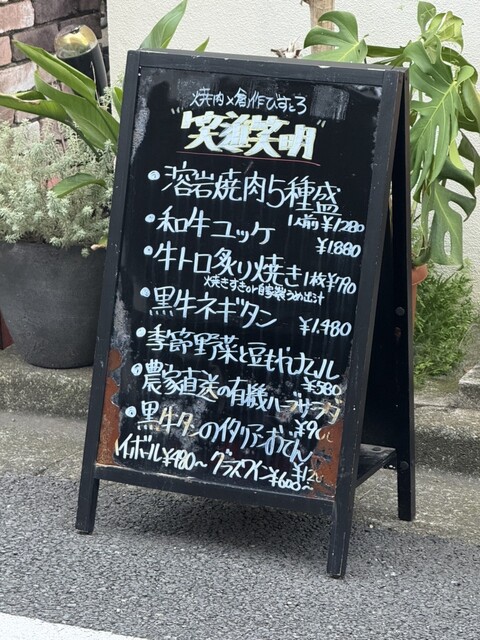 焼肉×創作びすとろ
"笑涯笑明"
・溶岩焼肉5種盛
1人前¥1,280
・和牛ユッケ
¥1,880
・牛トロ炙り焼き 1枚¥790
焼きすきor自家製うめ出汁
・黒牛ネギタン ¥1,480
・季節野菜と豆もやしナムル
¥580
・農家直送の有機ハーブサラダ
¥9
・黒牛タンのイタリアンおでん
¥12
イボール¥480~ グラスワイン¥600~